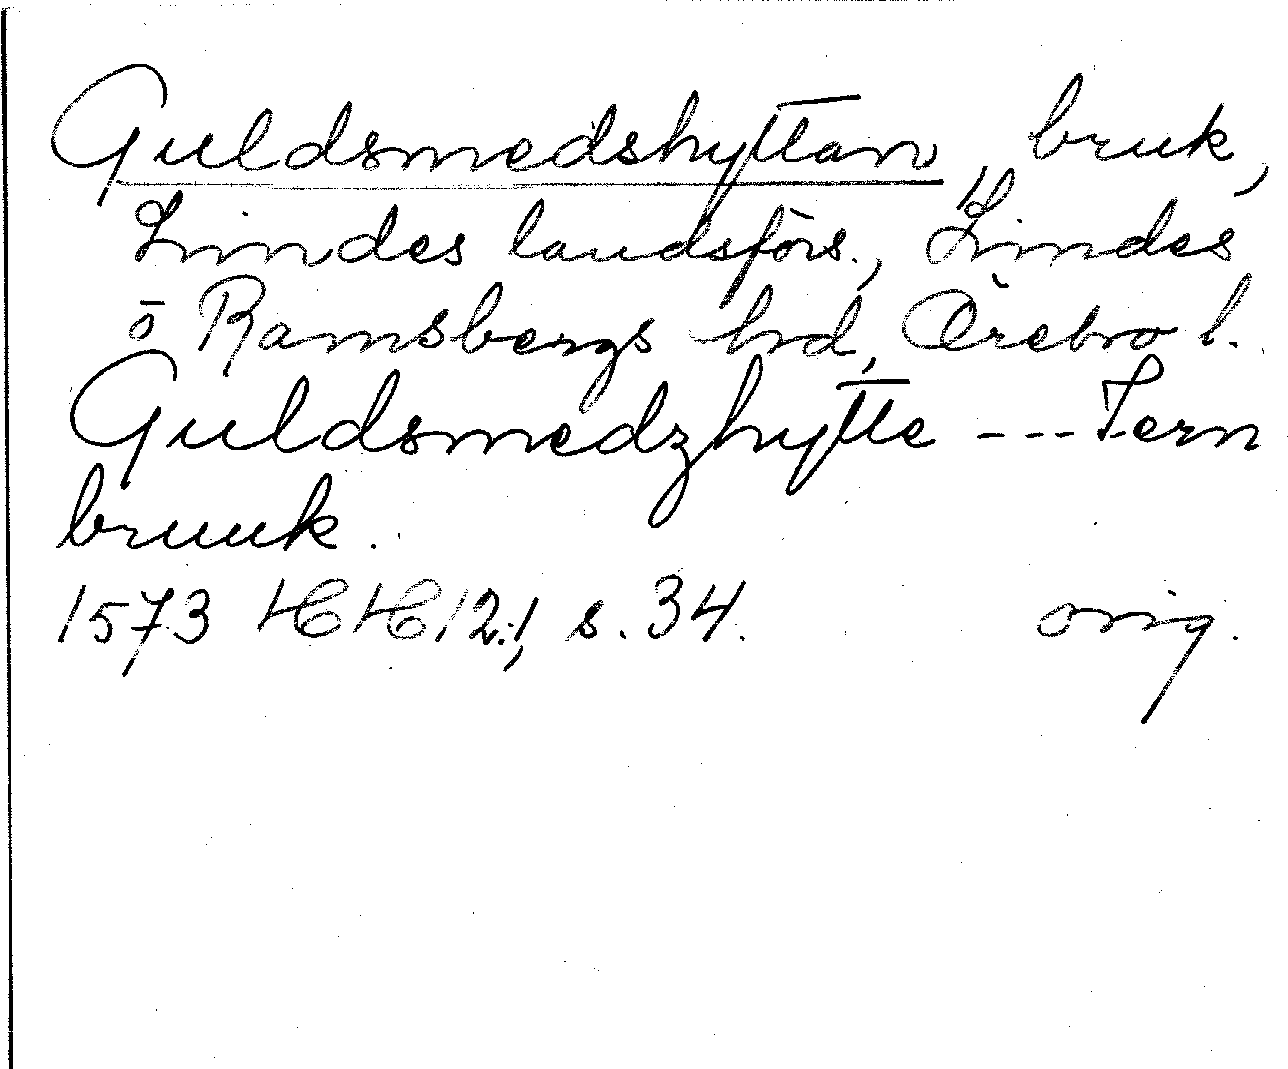 Guldsmedshyttan, bruk,
Lindes landsförs., Lindes
o Ramsbergs hrd, Örebro l.
Guldsmedzhytte --- Jern
bruuk.
1573 HH 12:1, s. 34. orig.